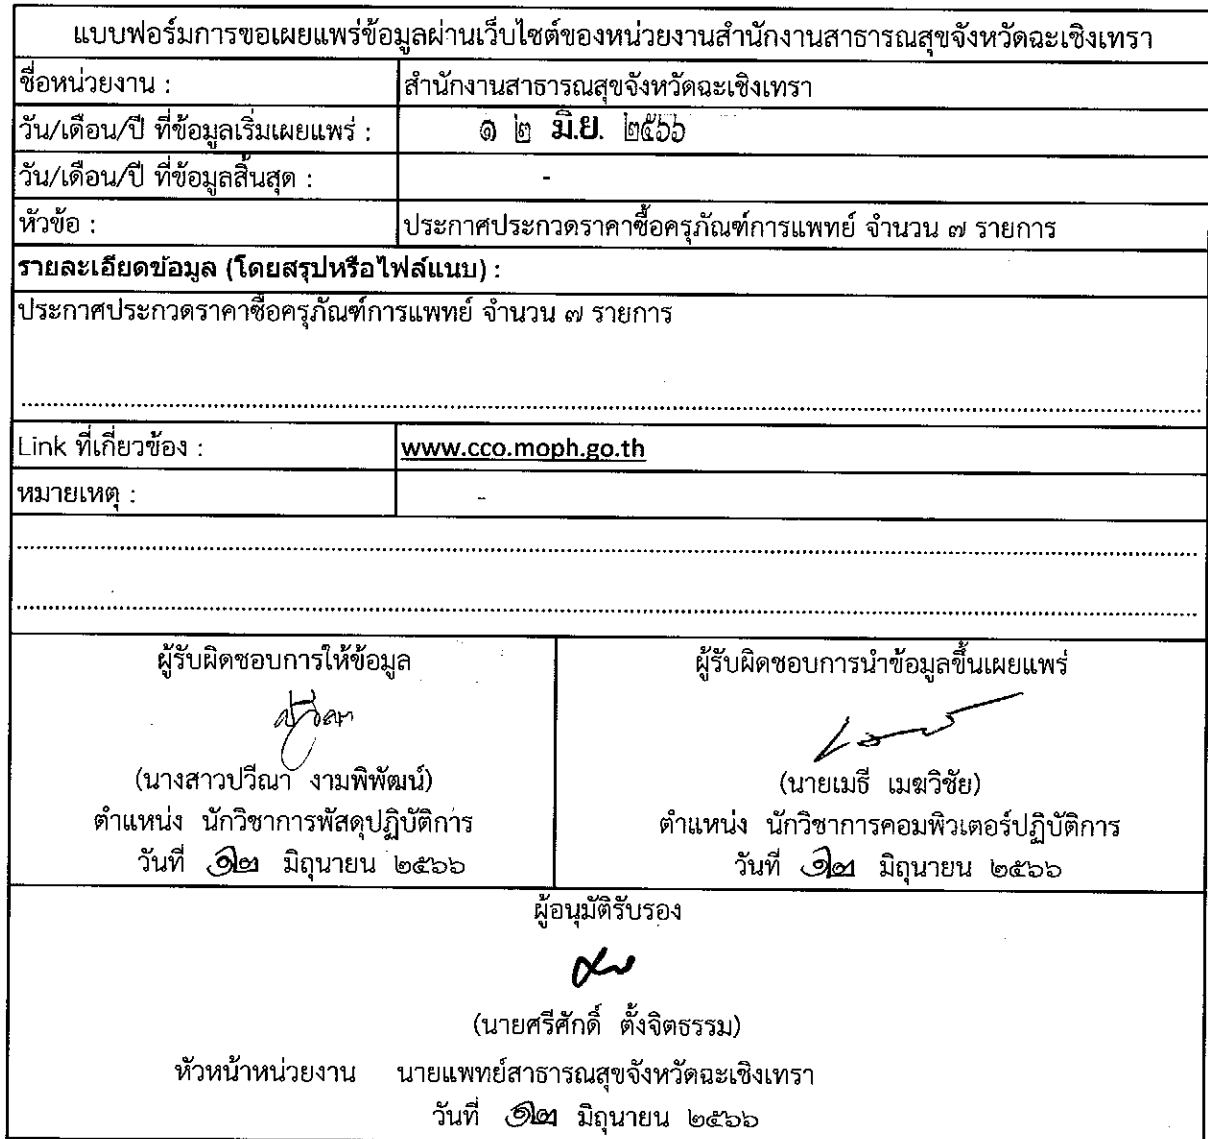 แบบฟอร์มการขอเผยแพร่ข้อมูลผ่านเว็บไซต์ของหน่วยงานสำนักงานสาธารณสุขจังหวัดฉะเชิงเทรา
ชื่อหน่วยงาน : สำนักงานสาธารณสุขจังหวัดฉะเชิงเทรา
วัน/เดือน/ปี ที่ข้อมูลเริ่มเผยแพร่ : ๑ ๒ มิ.ย. ๒๕๖๖
วัน/เดือน/ปี ที่ข้อมูลสิ้นสุด : -
หัวข้อ : ประกาศประกวดราคาซื้อครุภัณฑ์การแพทย์ จำนวน ๗ รายการ
รายละเอียดข้อมูล (โดยสรุปหรือไฟล์แนบ) :
ประกาศประกวดราคาซื้อครุภัณฑ์การแพทย์ จำนวน ๗ รายการ
Link ที่เกี่ยวข้อง : www.cco.moph.go.th
หมายเหตุ : -
ผู้รับผิดชอบการให้ข้อมูล
(นางสาวปวีณา งามพิพัฒน์)
ตำแหน่ง นักวิชาการพัสดุปฏิบัติการ
วันที่ ๑๒ มิถุนายน ๒๕๖๖
ผู้รับผิดชอบการนำข้อมูลขึ้นเผยแพร่
(นายเมธี เมฆวิชัย)
ตำแหน่ง นักวิชาการคอมพิวเตอร์ปฏิบัติการ
วันที่ ๑๒ มิถุนายน ๒๕๖๖
ผู้อนุมัติรับรอง
(นายศรีศักดิ์ ตั้งจิตธรรม)
หัวหน้าหน่วยงาน นายแพทย์สาธารณสุขจังหวัดฉะเชิงเทรา
วันที่ ๑๒ มิถุนายน ๒๕๖๖